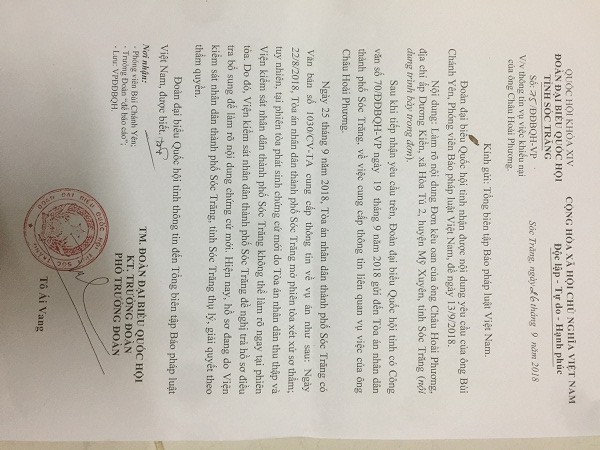 QUỐC HỘI KHÓA XIV
ĐOÀN ĐẠI BIỂU QUỐC HỘI
TỈNH SÓC TRĂNG
CỘNG HÒA XÃ HỘI CHỦ NGHĨA VIỆT NAM
Độc lập - Tự do - Hạnh phúc
Số: 75/ĐĐBQH-VP
V/v thông tin vụ việc khiếu nại
của ông Châu Hoài Phương.
Sóc Trăng, ngày 26 tháng 9 năm 2018
Kính gửi: Tổng biên tập Báo pháp luật Việt Nam.
Đoàn đại biểu Quốc hội tỉnh nhận được nội dung yêu cầu của ông Bùi
Chánh Yên, Phóng viên Báo pháp luật Việt Nam, đề ngày 13/9/2018.
Nội dung: Làm rõ nội dung Đơn kêu oan của ông Châu Hoài Phương,
địa chỉ ấp Dương Kiển, xã Hòa Tú 2, huyện Mỹ Xuyên, tỉnh Sóc Trăng (nội
dung trình bày trong đơn).
Sau khi tiếp nhận yêu cầu trên, Đoàn đại biểu Quốc hội tỉnh có Công
văn số 70/ĐĐBQH-VP ngày 19 tháng 9 năm 2018 gửi đến Tòa án nhân dân
thành phố Sóc Trăng, về việc cung cấp thông tin liên quan vụ việc của ông
Châu Hoài Phương.
Ngày 25 tháng 9 năm 2018, Tòa án nhân dân thành phố Sóc Trăng có
Văn bản số 1030/CV-TA cung cấp thông tin về vụ án như sau: Ngày
22/8/2018, Tòa án nhân dân thành phố Sóc Trăng mở phiên tòa xét xử sơ thẩm;
tuy nhiên, tại phiên tòa phát sinh chứng cứ mới do Tòa án nhân dân thu thập và
Viện kiểm sát nhân dân thành phố Sóc Trăng không thể làm rõ ngay tại phiên
tòa. Do đó, Viện kiểm sát nhân dân thành phố Sóc Trăng đề nghị trả hồ sơ điều
tra bổ sung để làm rõ nội dung chứng cứ mới. Hiện nay, hồ sơ đang do Viện
kiểm sát nhân dân thành phố Sóc Trăng, tỉnh Sóc Trăng thụ lý, giải quyết theo
thẩm quyền.
Đoàn đại biểu Quốc hội tỉnh thông tin đến Tổng biên tập Báo pháp luật
Việt Nam, được biết.
Nơi nhận:
- Phóng viên Bùi Chánh Yên;
- Trưởng Đoàn "để báo cáo";
- Lưu: VPĐĐBQH.
TM. ĐOÀN ĐẠI BIỂU QUỐC HỘI
KT. TRƯỞNG ĐOÀN
PHÓ TRƯỞNG ĐOÀN
Tô Ái Vang